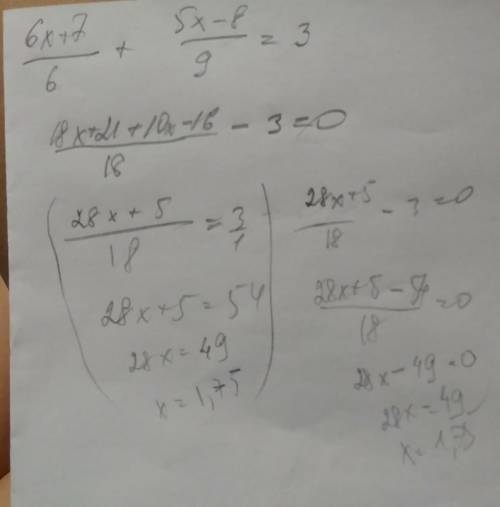 (6x+7)/6 + (5x-8)/9 = 3
(18x+21+10x-16)/18 - 3 = 0
(28x+5)/18 = 3/1
28x+5 = 54
28x = 49
x = 1,75
(28x+5)/18 - 3 = 0
(28x+5-54)/18 = 0
28x-49=0
28x=49
x=1,75